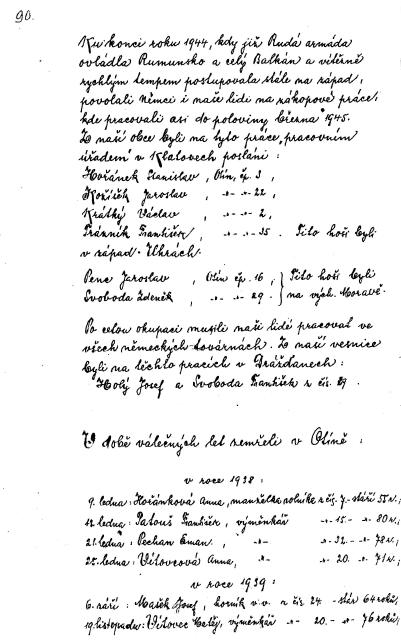 90.
Ku konci roku 1944, kdy již Rudá armáda
ovládla Rumunsko a celý Balkán a vítězně
rychlým tempem postupovala stále na západ,
povolali Němci i naše lidi na zákopové práce,
kde pracovali asi do poloviny března 1945.
Z naší obce byli na tyto práce, pracovním
úřadem v Klatovech posláni :
Hořánek Stanislav, Otín, čp. 3,
Jaroslav, -"- -"- 22,
Krátký Václav, -"- -"- 2,
Trázník František, -"- -"- 35. Tito hoši byli
v západ. Uhrách.
Penc Jaroslav, Otín čp. 16, } Tito hoši byli
Svoboda Zdeněk, -"- -"- 29. } na vých. Moravě.
Po celou okupaci musili naši lidé pracovat ve
všech německých továrnách. Z naší vesnice
byli na těchto pracích v Drážďanech :
Holý Josef a Svoboda František z čís. 29.
V době válečných let zemřeli v Otíně :
v roce 1938 :
9. ledna : Hořánková Anna, manželka rolníka z čís. 7 - stáří 55 r.;
12. ledna : Patouš František, výměnkář -"- 15. -"- 80 r.;
21. ledna : Pechan Eman., -"- -"- 32. -"- 78 r.;
25. ledna : Vítovcová Anna, -"- -"- 20. -"- 71 r.;
v roce 1939 :
6. září : Mašek Josef, horník v.v. z čís. 24 - stár 64 roků,
19. listopadu : Vítovec Matěj, výměnkář -"- 20. -"- 76 roků,